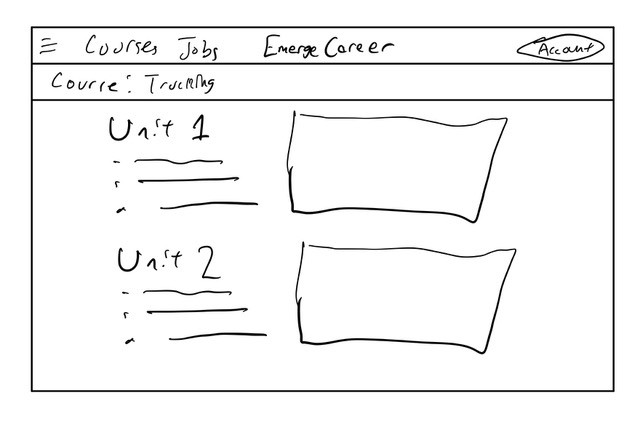 Courses Jobs EmergeCareer Account
Course: Trucking
Unit 1
Unit 2